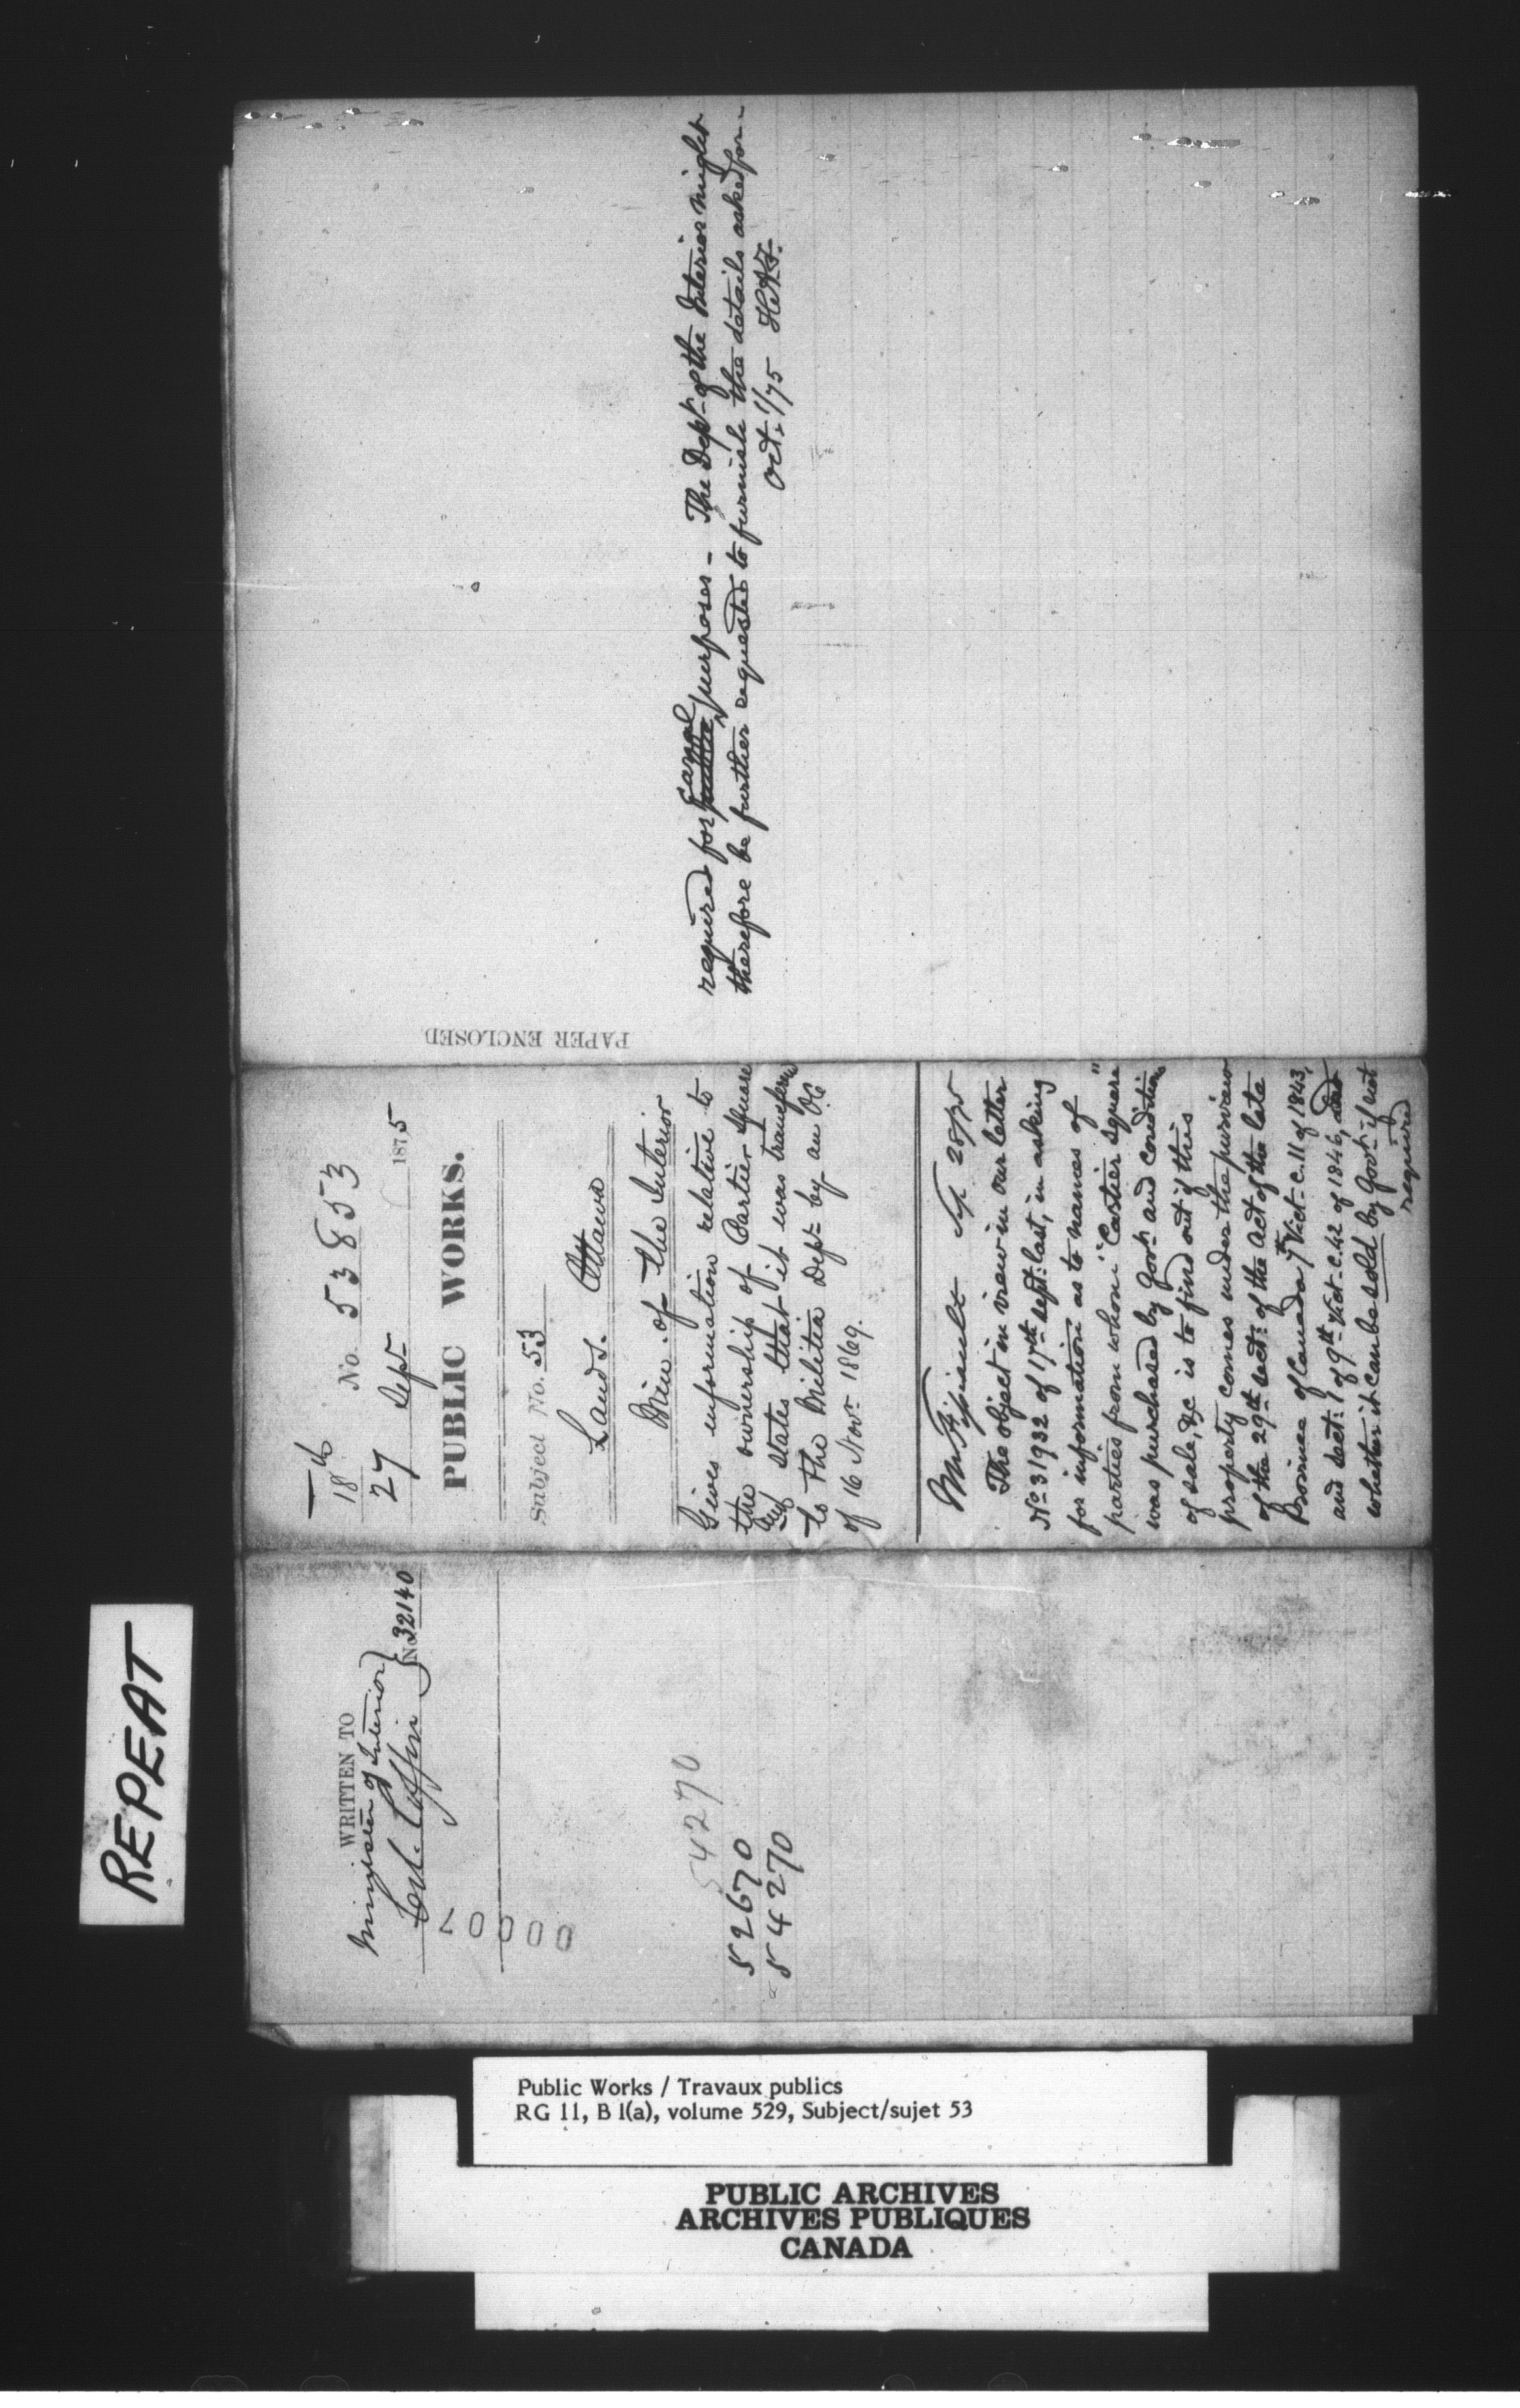 REPEAT
WRITTEN TO
Minister of Interior
Col. Coffin } No. 32140
00007
54270
52670
54270
18
No. 53853
27 Sept 1875
PUBLIC WORKS.
Subject No. 53
Lands. Ottawa
Min. of the Interior
Gives information relative to
the ownership of Cartier Square
and states that it was transferred
to the Militia Dept. by an O.C.
of 16 Novr. 1869.
Sep 28/75
The object in view in our letter
No. 31932 of 17th Sept: last, in asking
for information as to names of
parties from whom "Cartier Square"
was purchased by Govt. and conditions
of sale, &c is to find out if this
property comes under the purview
of the 29th sect: of the Act of the late
Province of Canada 7th Vict. c. 11 of 1843,
and sect: 1 of 9th Vict. c. 42 of 1846, and
whether it can be sold by Govt. if not
required
PAPER ENCLOSED
required for public canal purposes - The Dept. of the Interior might
therefore be further requested to furnish the details asked for -
Oct. 1/75
Public Works / Travaux publics
RG 11, B 1(a), volume 529, Subject/sujet 53
PUBLIC ARCHIVES
ARCHIVES PUBLIQUES
CANADA